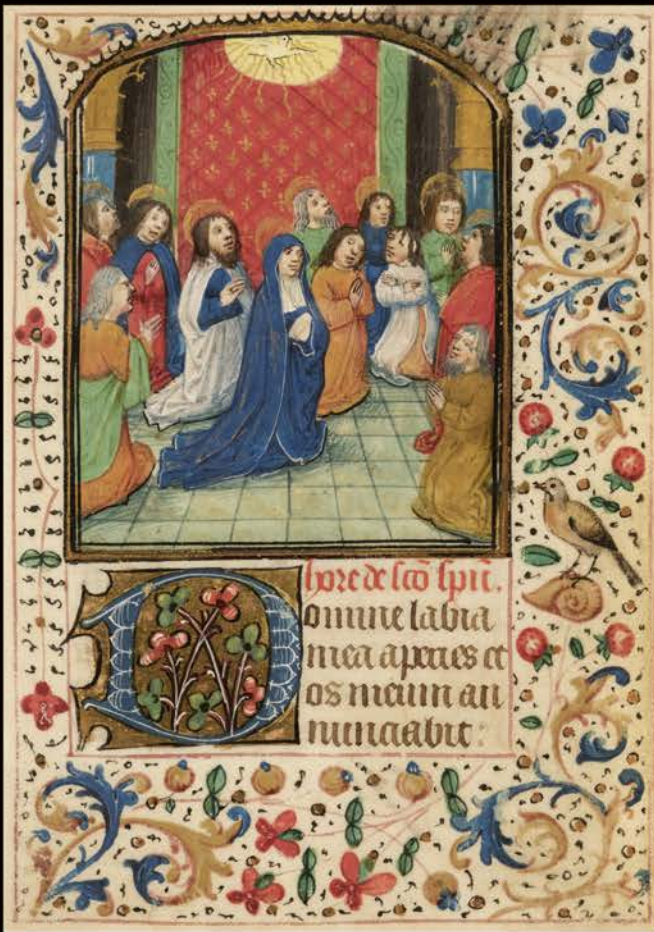 hore de sc̄o spū.
Domine labia
mea aperies et
os meum an
nunciabit :